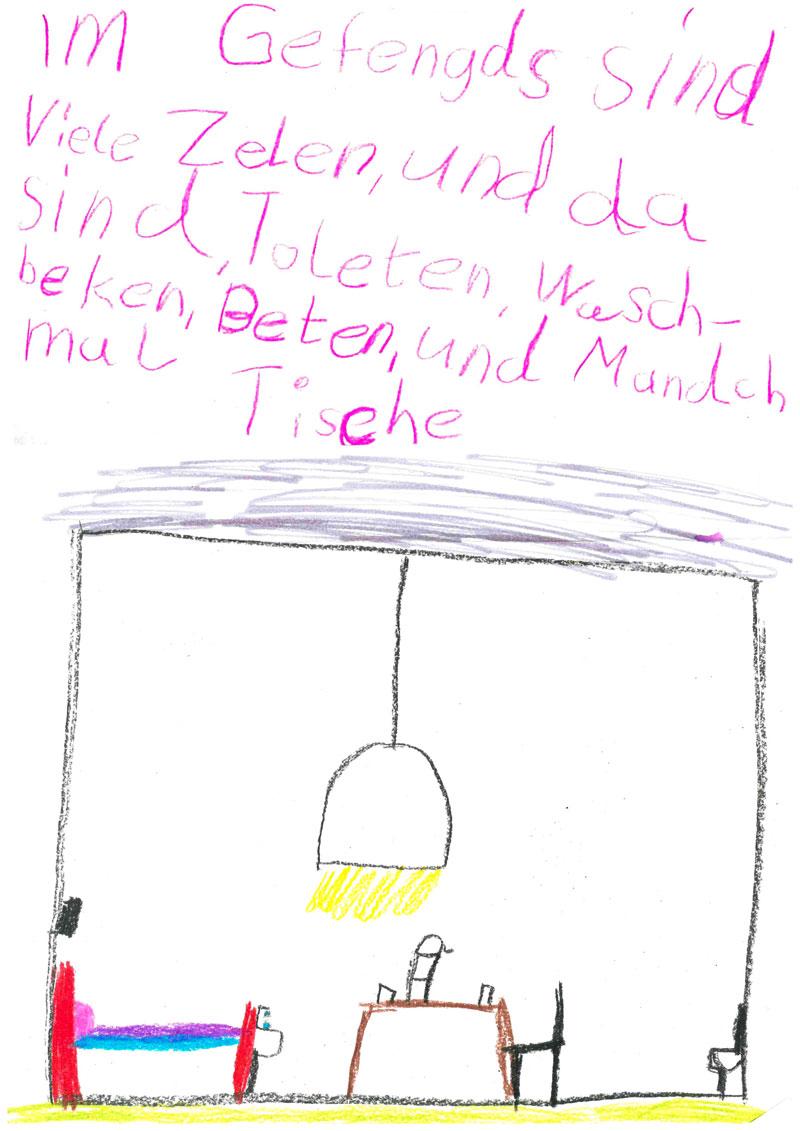 im Gefengds sind
Viele Zelen, und da
sind, Toleten, Wasch-
beken, Beten, und Mandch
mal
Tische